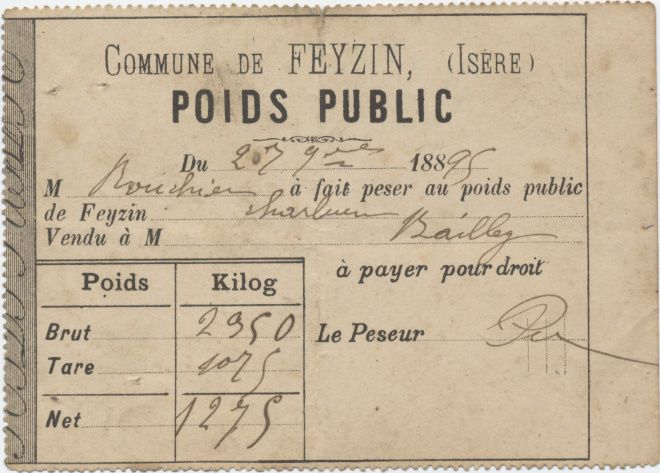 COMMUNE DE FEYZIN, (ISÈRE)
POIDS PUBLIC
Du 27 9bre 18895
M Bouchier à fait peser au poids public
de Feyzin
Vendu à M Bailley
Poids Kilog
à payer pour droit
Brut 2350
Le Peseur
Tare 1075
Net 1275